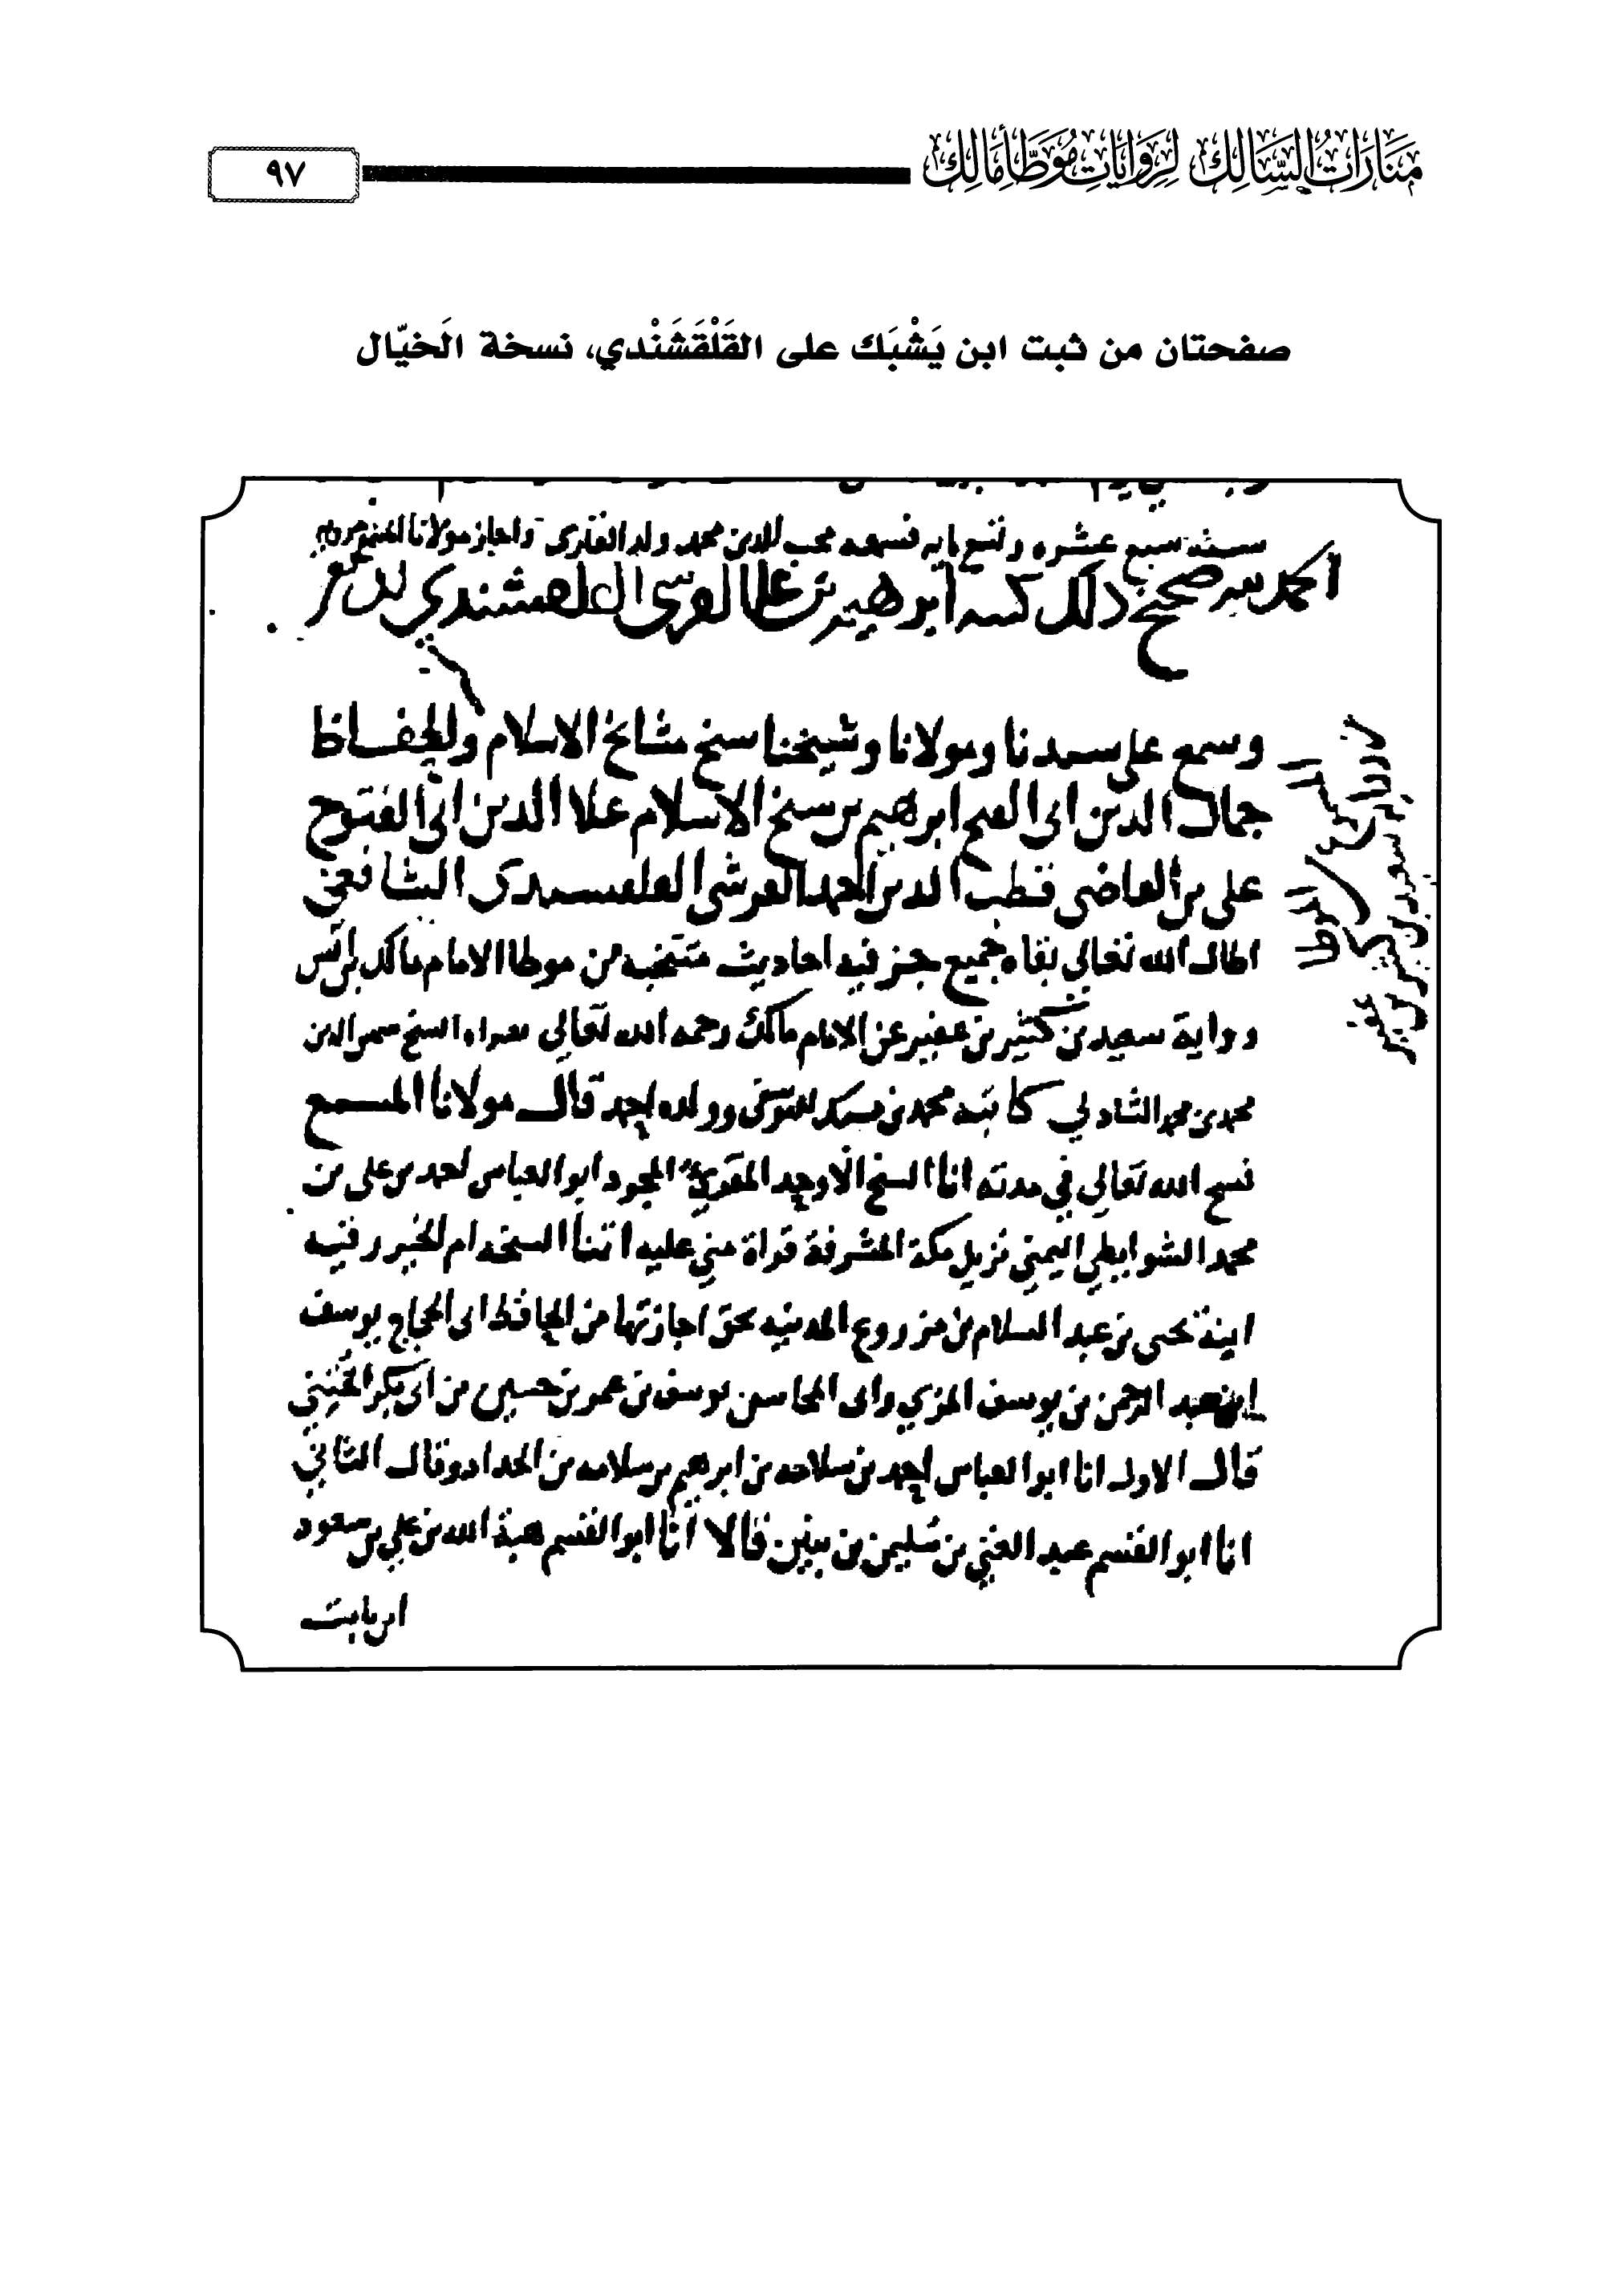 مَنَارَاتُ السَّالِك لِرِوَايَاتِ مُوَطَّأ مَالِك
٩٧
صفحتان من ثبت ابن يَشْبَك على القَلْقَشَنْدي، نسخة الَخيّال
سنة سبع عشره وتسع مايه فسمعه محب الدين محمد ولد القارى واجاز مولانا المسمع
الحمد لله صحيح ذلك كتبه ابرهيم بن على القرشى القلقشندي
وسمع على سيدنا ومولانا وشيخنا شيخ مشائخ الاسلام والحفاظ
جمال الدين ابى الفتح ابرهيم بن شيخ الاسلام علا الدين ابى الفتوح
على بن القاضى قطب الدين احمد القرشى القلقشندى الشافعي
اطال الله تعالي بقاه جميع جزء فيه احاديث منتخبه من موطا الامام مالك بن انس
رواية سعيد بن كثير بن عفير عن الامام مالك رحمه الله تعالي بقراه الشيخ شمس الدين
محمد بن محمد الشاذلي كاتبه محمد بن يشبك اليوسفى وولده احمد قال مولانا المسمع
فسح الله تعالي في مدته انا الشيخ الاوحد المقرئ المجود ابو العباس احمد بن على بن
محمد الشوايطي اليمني نزيل مكة المشرفة قراة مني عليه اتنا الشيخه ام الخير رقيه
ابنة يحيى بن عبد السلام بن مزروع المدنيه بحق اجازتها من الحافظ ابى الحجاج يوسف
ابن عبد الرحمن بن يوسف المزي وابى المحاسن يوسف بن عمر بن حسين بن ابى بكر الخُتَني
قال الاول انا ابو العباس احمد بن سلامه بن ابرهيم بن سلامه بن الحداد وقال الثاني
انا ابو القسم عبد الغني بن سُليمن بن بنين قالا انا ابو القسم هبة الله بن علي بن سعود
ابن ثابت